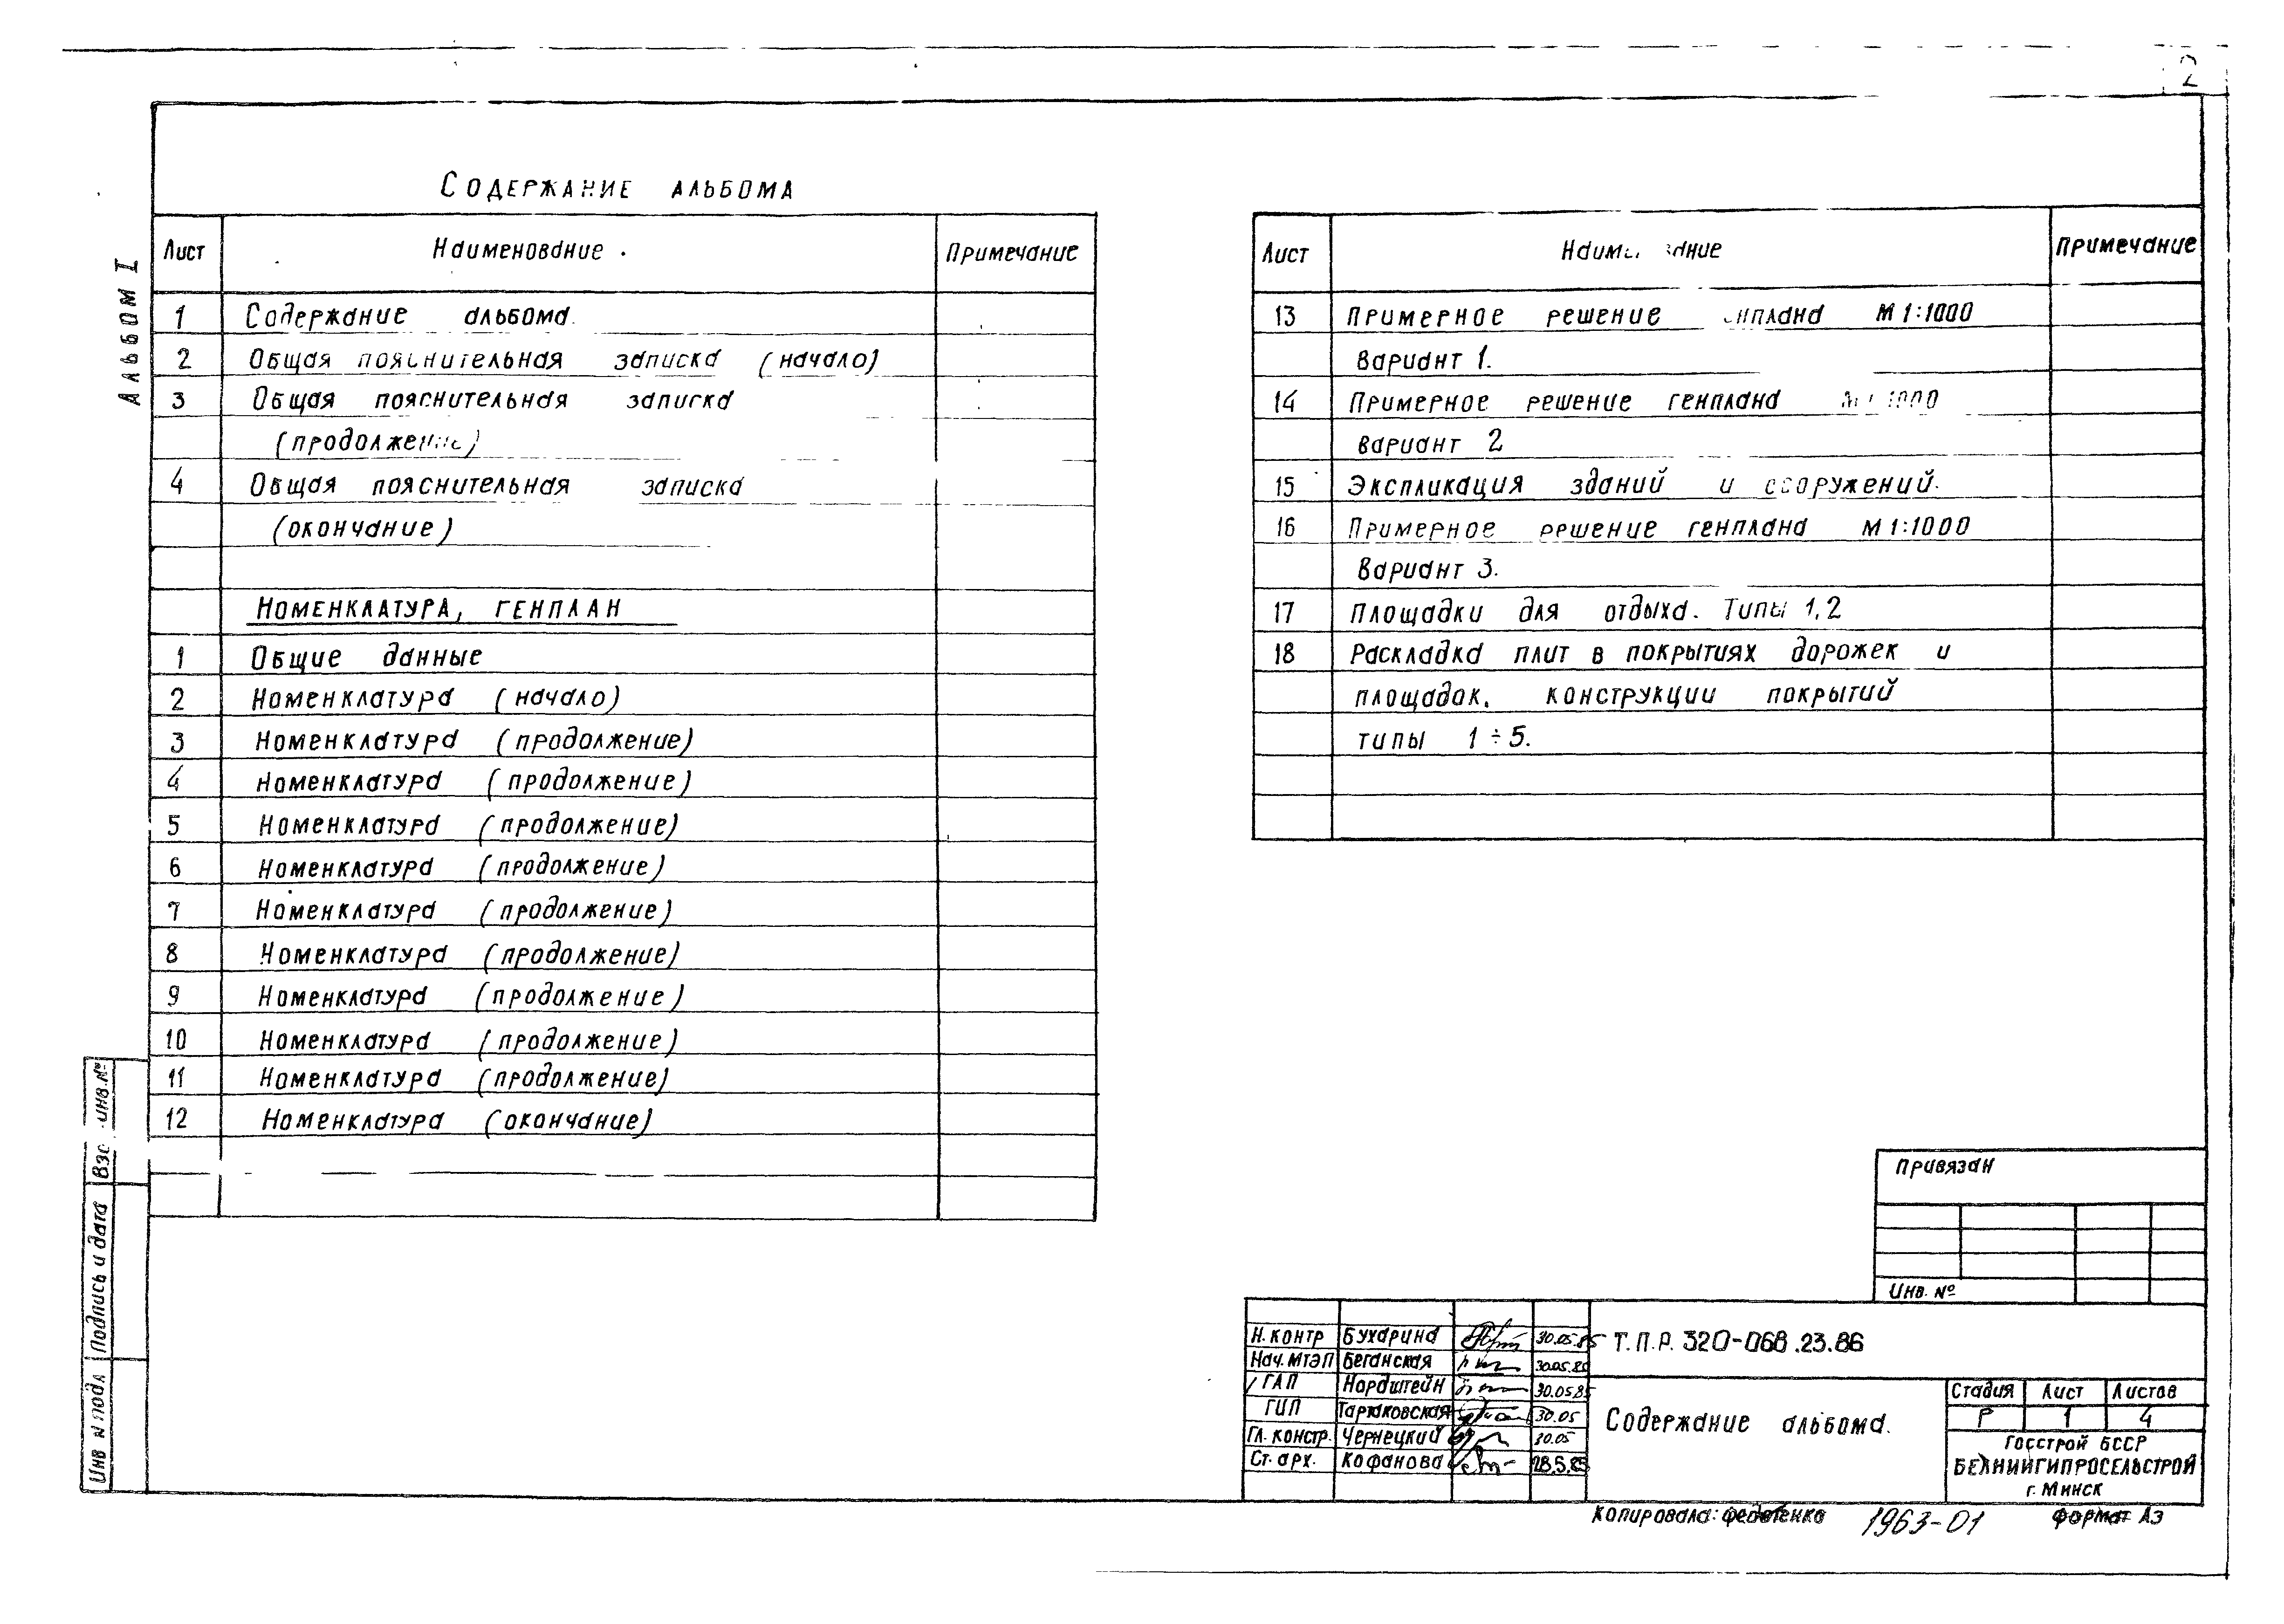 2
Альбом I
Содержание альбома
Лист Наименование Примечание
1 Содержание альбома.
2 Общая пояснительная записка (начало)
3 Общая пояснительная записка
(продолжение)
4 Общая пояснительная записка
(окончание)
Номенклатура, генплан
1 Общие данные
2 Номенклатура (начало)
3 Номенклатура (продолжение)
4 Номенклатура (продолжение)
5 Номенклатура (продолжение)
6 Номенклатура (продолжение)
7 Номенклатура (продолжение)
8 Номенклатура (продолжение)
9 Номенклатура (продолжение)
10 Номенклатура (продолжение)
11 Номенклатура (продолжение)
12 Номенклатура (окончание)
Лист Наименование Примечание
13 Примерное решение генплана М 1:1000
Вариант 1.
14 Примерное решение генплана М 1:1000
Вариант 2
15 Экспликация зданий и сооружений.
16 Примерное решение генплана М 1:1000
Вариант 3.
17 Площадки для отдыха. Типы 1,2
18 Раскладка плит в покрытиях дорожек и
площадок, конструкции покрытий
типы 1÷5.
Привязан
Инв. №
Н. контр Бухарина 30.05.85
Нач. МТЭП Беганская 30.05.85
ГАП Нордштейн 30.05.85
ГИП Тартаковская 30.05
Гл. констр. Чернецкий 30.05
Ст. арх. Кофанова 28.5.85
Т.П.Р. 320-068.23.86
Содержание альбома.
Стадия Лист Листов
Р 1 4
Госстрой БССР
БЕЛНИИГИПРОСЕЛЬСТРОЙ
г. Минск
Копировала: Федотенко 1963-01 Формат А3
Инв № подл Подпись и дата инв. №